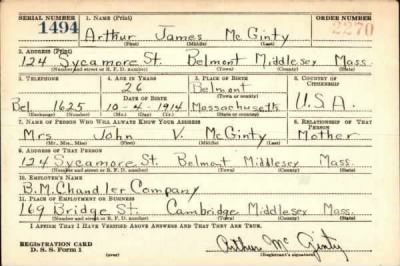 SERIAL NUMBER 1. NAME (Print) ORDER NUMBER
1494 Arthur James McGinty 2270
(First) (Middle) (Last)
2. ADDRESS (Print)
124 Sycamore St. Belmont Middlesex Mass.
(Number and street or R. F. D. number) (Town) (County) (State)
3. TELEPHONE 4. AGE IN YEARS 5. PLACE OF BIRTH 6. COUNTRY OF CITIZENSHIP
26 Belmont
DATE OF BIRTH (Town or county)
Bel. 1625 10-4-1914 Massachusetts U.S.A.
(Exchange) (Number) (Mo.) (Day) (Yr.) (State or country)
7. NAME OF PERSON WHO WILL ALWAYS KNOW YOUR ADDRESS 8. RELATIONSHIP OF THAT PERSON
Mrs. John V. McGinty Mother
(Mr., Mrs., Miss) (First) (Middle) (Last)
9. ADDRESS OF THAT PERSON
124 Sycamore St. Belmont Middlesex Mass.
(Number and street or R. F. D. number) (Town) (County) (State)
10. EMPLOYER'S NAME
B.M. Chandler Company
11. PLACE OF EMPLOYMENT OR BUSINESS
169 Bridge St. Cambridge Middlesex Mass.
(Number and street or R. F. D. number) (Town) (County) (State)
I AFFIRM THAT I HAVE VERIFIED ABOVE ANSWERS AND THAT THEY ARE TRUE.
REGISTRATION CARD Arthur McGinty
D. S. S. Form 1 (over) (Registrant's signature)